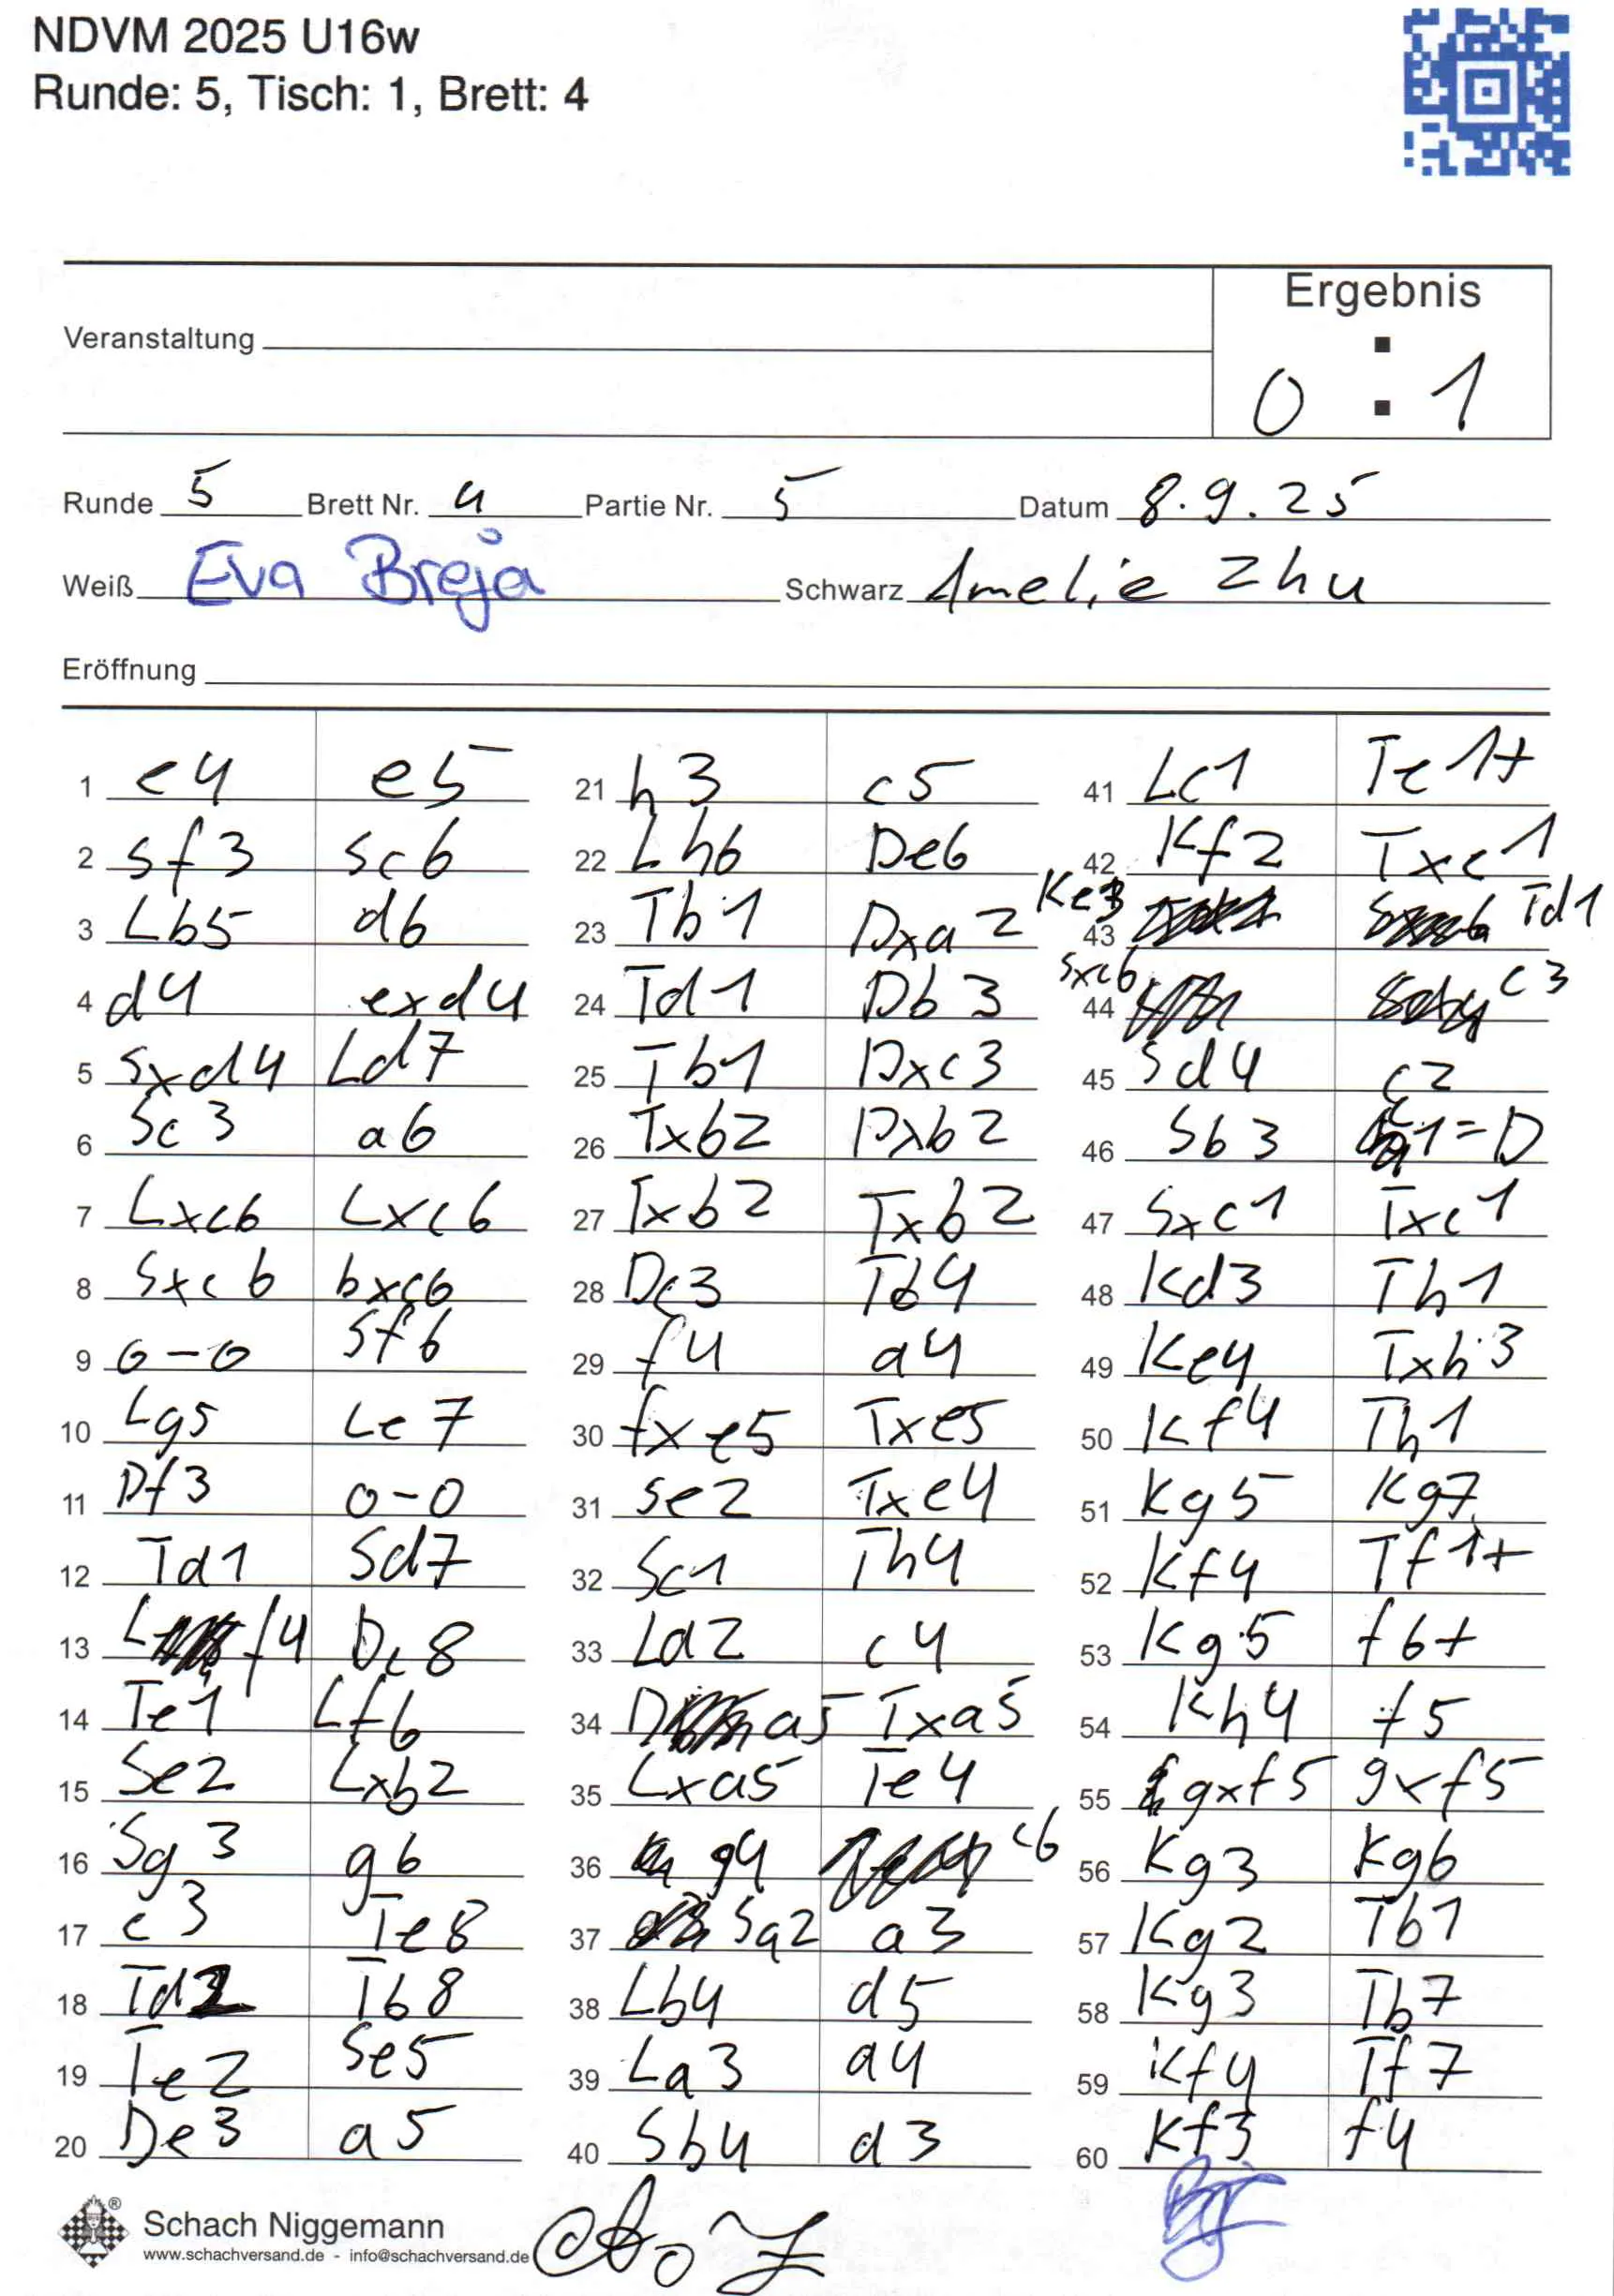 NDVM 2025 U16w
Runde: 5, Tisch: 1, Brett: 4
Ergebnis
Veranstaltung
0 : 1
Runde 5 Brett Nr. 4 Partie Nr. 5 Datum 8.9.25
Weiß Eva Breja Schwarz Amelie Zhu
Eröffnung
1 e4 e5
2 Sf3 Sc6
3 Lb5 d6
4 d4 exd4
5 Sxd4 Ld7
6 Sc3 a6
7 Lxc6 Lxc6
8 Sxc6 bxc6
9 0-0 Sf6
10 Lg5 Le7
11 Df3 0-0
12 Td1 Sd7
13 Lf4 Dc8
14 Te1 Lf6
15 Se2 Lxb2
16 Sg3 g6
17 c3 Te8
18 Td2 Tb8
19 Te2 Se5
20 De3 a5
21 h3 c5
22 Lh6 De6
23 Tb1 Dxa2
24 Td1 Db3
25 Tb1 Dxc3
26 Txb2 Dxb2
27 Txb2 Txb2
28 Dc3 Tb4
29 f4 a4
30 fxe5 Txe5
31 Se2 Txe4
32 Sc1 Th4
33 Ld2 c4
34 Da5 Txa5
35 Lxa5 Te4
36 g4 c6
37 Sa2 a3
38 Lb4 d5
39 La3 d4
40 Sb4 d3
41 Lc1 Te1+
42 Kf2 Txc1
43 Ke3 Td1
44 Sxc6 c3
45 Sd4 c2
46 Sb3 c1=D
47 Sxc1 Txc1
48 Kd3 Th1
49 Ke4 Txh3
50 Kf4 Th1
51 Kg5 Kg7
52 Kf4 Tf1+
53 Kg5 f6+
54 Kh4 f5
55 gxf5 gxf5
56 Kg3 Kg6
57 Kg2 Tb1
58 Kg3 Tb7
59 Kf4 Tf7
60 Kf3 f4
Schach Niggemann
www.schachversand.de - info@schachversand.de